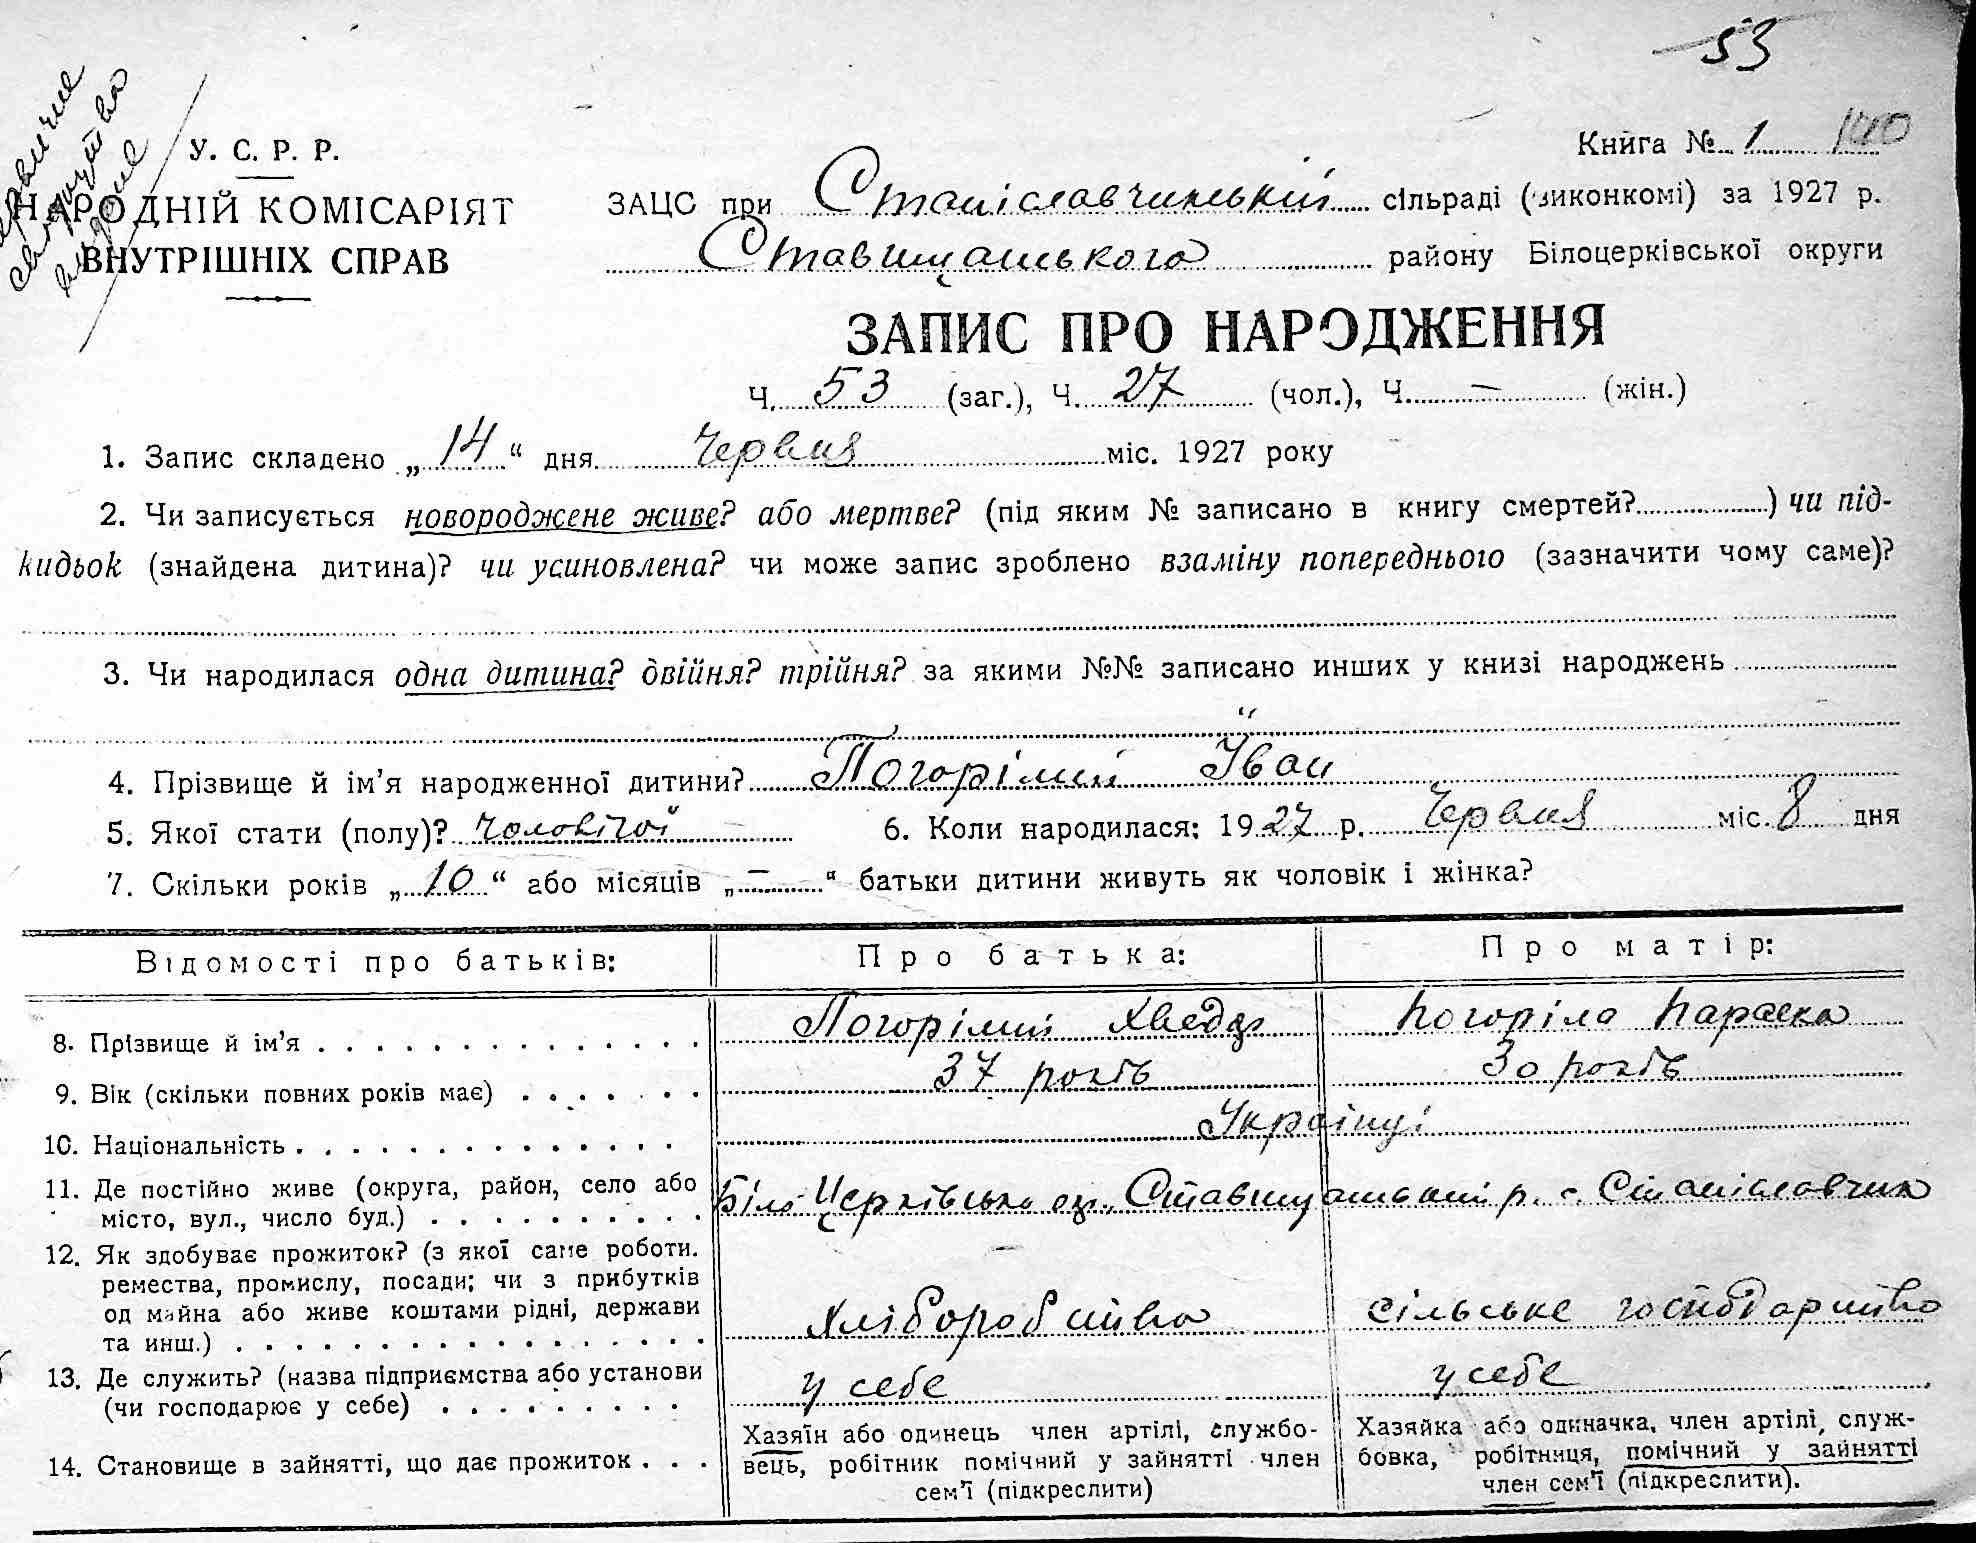 53
свідоцтво
видане
У. С. Р. Р.
НАРОДНІЙ КОМІСАРІЯТ
ВНУТРІШНІХ СПРАВ
Книга № 1 140
ЗАЦС при Станіславчинській сільраді (виконкомі) за 1927 р.
Ставищанського району Білоцерківської округи
ЗАПИС ПРО НАРОДЖЕННЯ
Ч. 53 (заг.), Ч. 27 (чол.), Ч. — (жін.)
1. Запис складено „ 14 “ дня Червня міс. 1927 року
2. Чи записується новороджене живе? або мертве? (під яким № записано в книгу смертей? ) чи під-
кидьок (знайдена дитина)? чи усиновлена? чи може запис зроблено взаміну попереднього (зазначити чому саме)?
3. Чи народилася одна дитина? двійня? трійня? за якими №№ записано инших у книзі народжень
4. Прізвище й ім’я народженної дитини? Погорілий Іван
5. Якої стати (полу)? Чоловічої 6. Коли народилася: 1927 р. Червня міс. 8 дня
7. Скільки років „ 10 “ або місяців „ — “ батьки дитини живуть як чоловік і жінка?
Відомості про батьків: Про батька: Про матір:
8. Прізвище й ім’я Погорілий Хведір Погоріла Параска
9. Вік (скільки повних років має) 37 років 30 років
10. Національність Українці
11. Де постійно живе (округа, район, село або
місто, вул., число буд.) Біло-Церківська окр., Ставищанський р. с. Станіславчик
12. Як здобуває прожиток? (з якої саме роботи.
ремества, промислу, посади; чи з прибутків
од майна або живе коштами рідні, держави
та инш.) Хліборобство сільське господарство
13. Де служить? (назва підприємства або установи
(чи господарює у себе) у себе у себе
14. Становище в зайнятті, що дає прожиток
Хазяїн або одинець член артілі, службо-
вець, робітник помічний у зайнятті член
сем’ї (підкреслити)
Хазяйка або одиначка, член артілі, служ-
бовка, робітниця, помічний у зайнятті
член сем’ї (підкреслити).